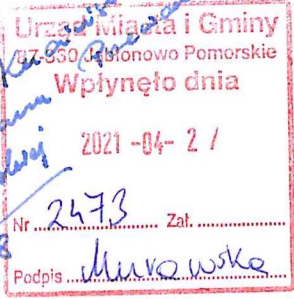 Urząd Miasta i Gminy
87-330 Jabłonowo Pomorskie
Wpłynęło dnia
2021 -04- 2
Nr 2473 Zał.
Podpis Murawska